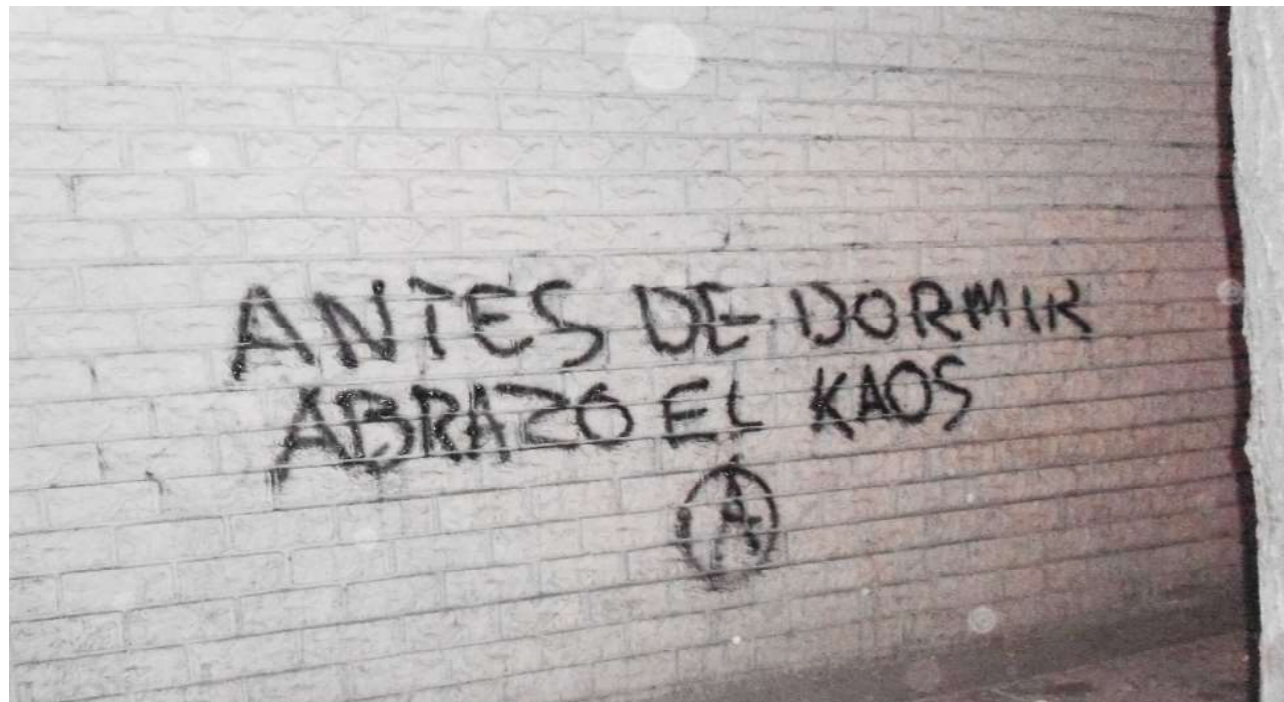 ANTES DE DORMIR
ABRAZO EL KAOS
A